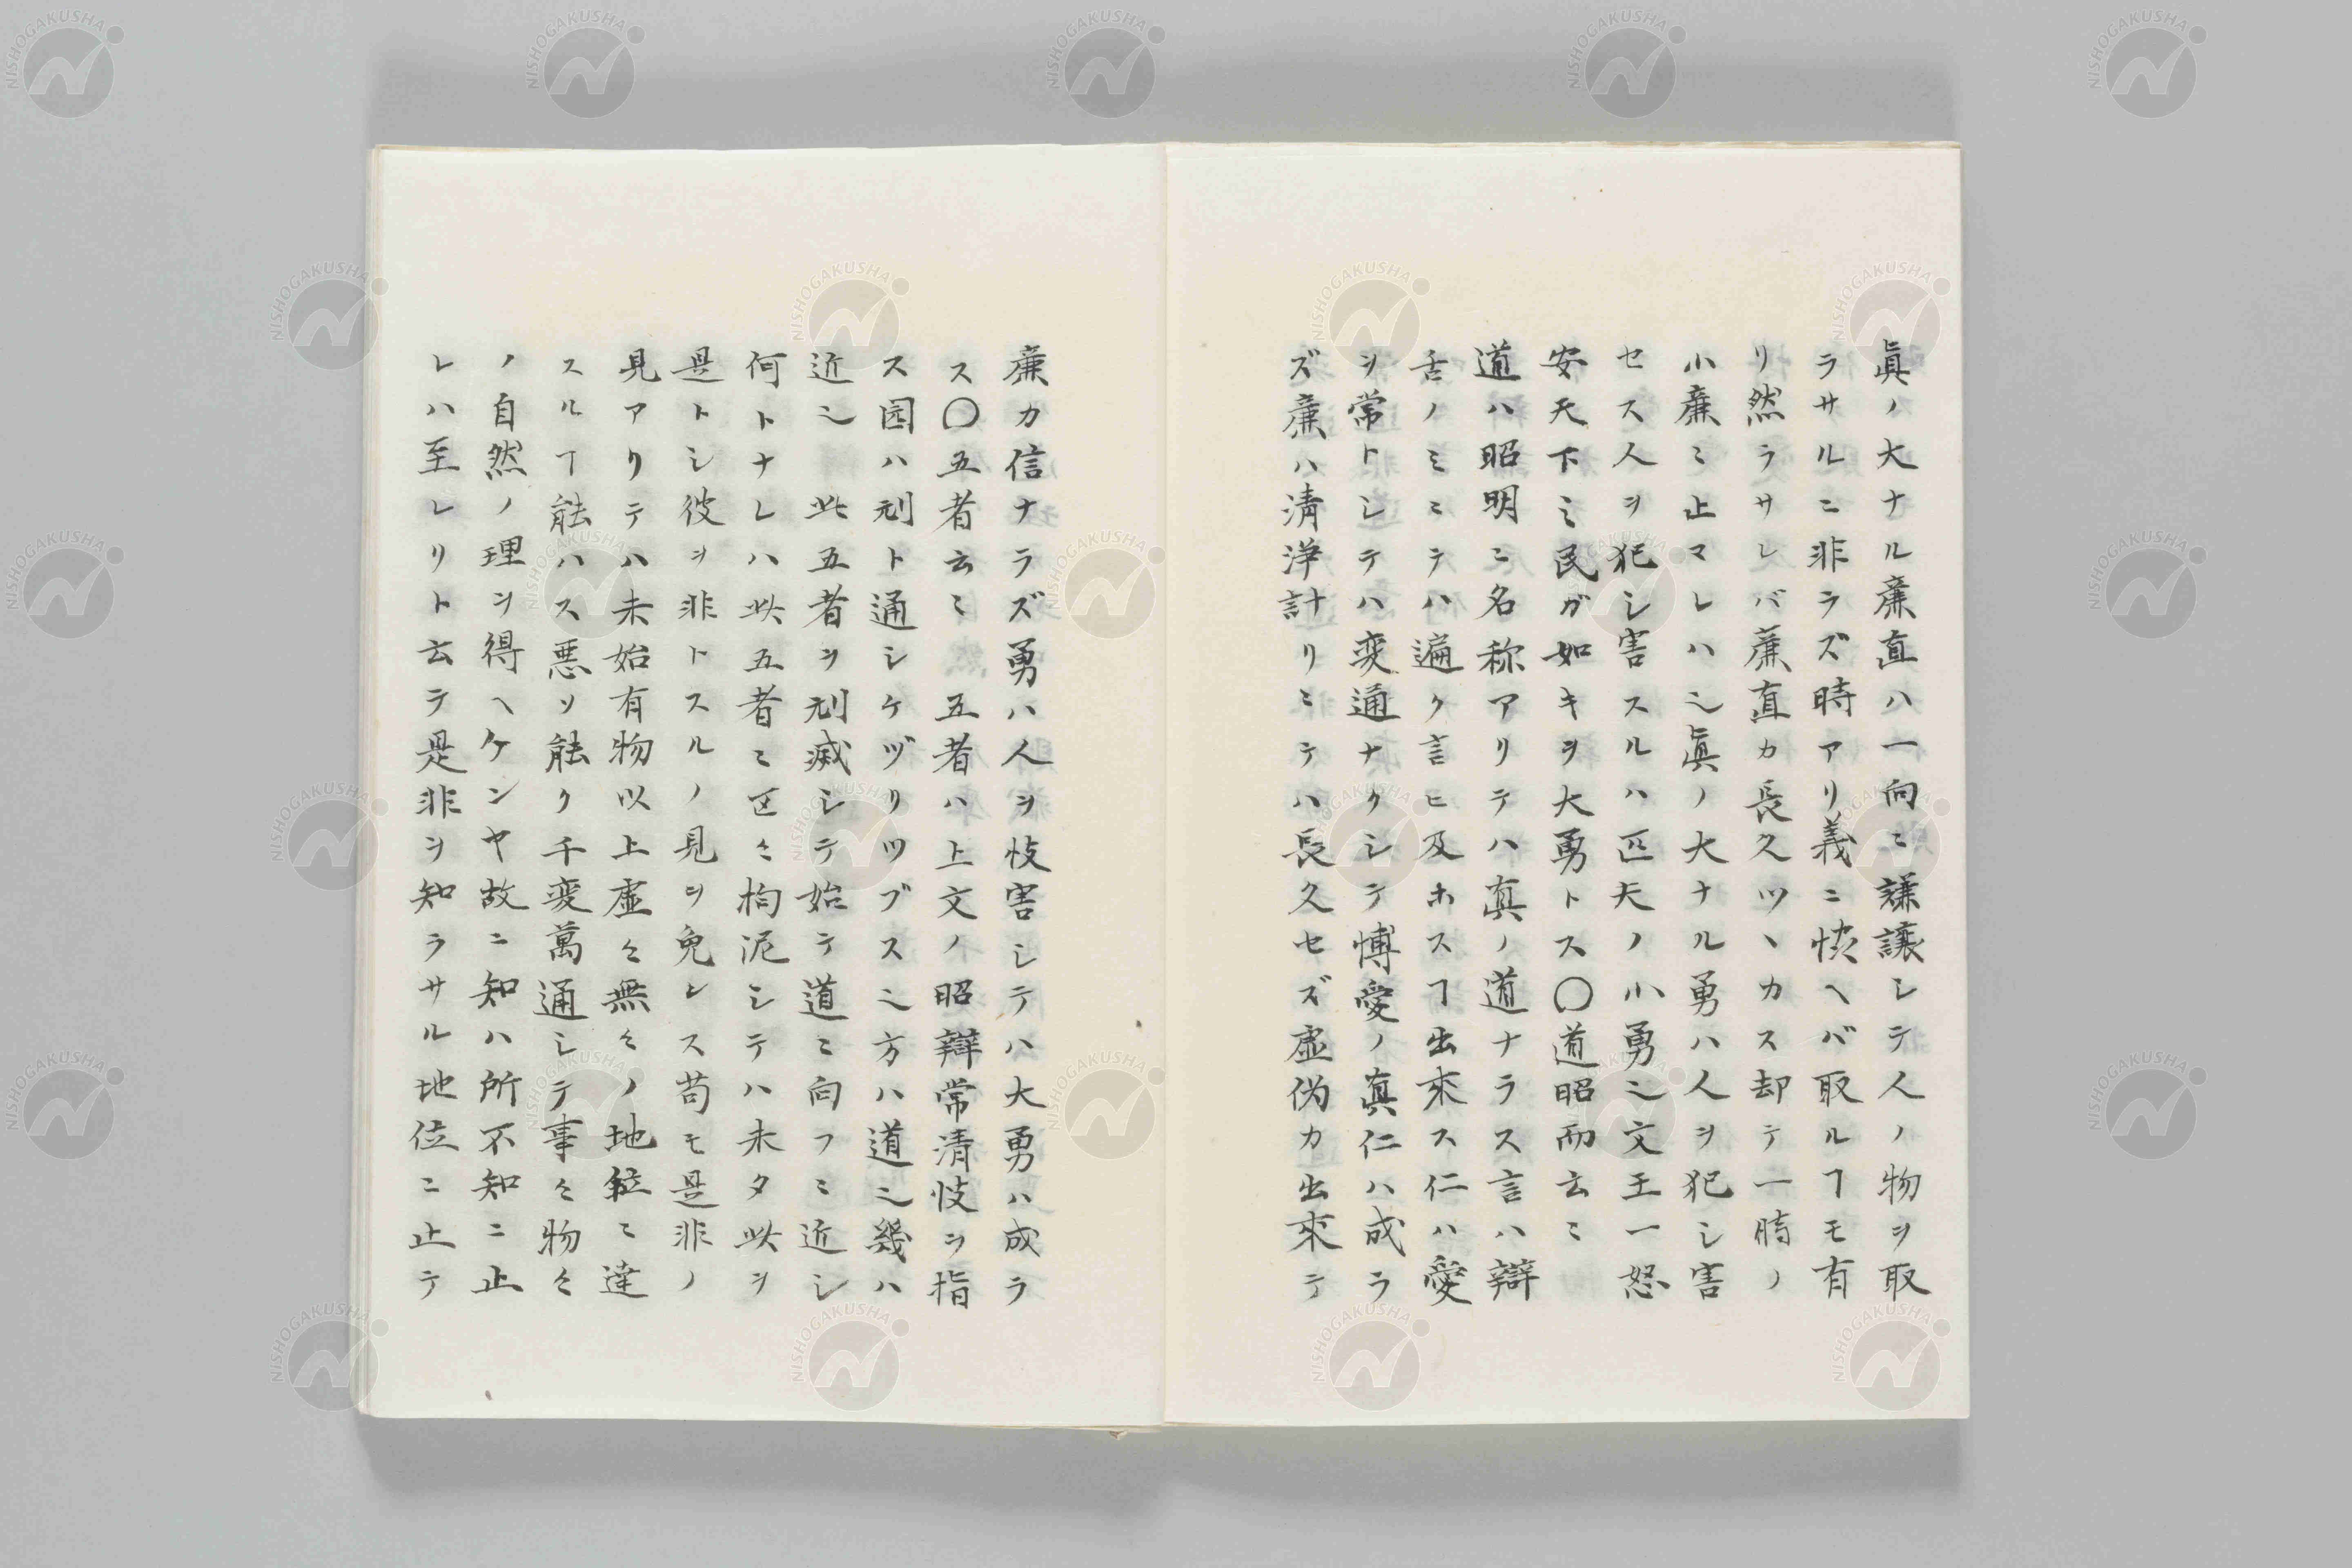 眞ノ大ナル廉直ハ一向ニ謙讓シテ人ノ物ヲ取
ラサルニ非ラズ時アリ義ニ愜ヘバ取ルヿモ有
リ然ラサレバ廉直カ長久ツヽカス却テ一時ノ
小廉ミ止マレハ〆眞ノ大ナル勇ハ人ヲ犯シ害
セス人ヲ犯シ害スルハ匹夫ノ小勇〆文王一怒
安天下ミ民ガ如キヲ大勇トス〇道昭而云ミ
道ハ昭明ニ名称アリテハ真ノ道ナラス言ハ辯
舌ノミニテハ遍ク言ヒ及ホスヿ出來ス仁ハ愛
ヲ常トシテハ変通ナクシテ博愛ノ眞仁ハ成ラ
ズ廉ハ清浄計リミテハ長久セズ虚偽カ出來テ
廉カ信ナラズ勇ハ人ヲ忮害シテハ大勇ハ成ラ
ス〇五者云ミ 五者ハ上文ノ昭辯常清忮ヲ指
ス园ハ刓ト通シケヅリツブス〆方ハ道〆幾ハ
近〆 此五者ヲ刓滅シテ始テ道ミ向フミ近シ
何トナレハ此五者ミ区々拘泥シテハ未タ此ヲ
是トシ彼ヲ非トスルノ見ヲ免レス苟モ是非ノ
見アリテハ未始有物以上虚々無々ノ地位ミ達
スルヿ能ハス悪ソ能ク千変萬通シテ事々物々
ノ自然ノ理ヲ得ヘケンヤ故ニ知ハ所不知ニ止
レハ至レリト云テ是非ヲ知ラサル地位ニ止テ
NISHOGAKUSHA